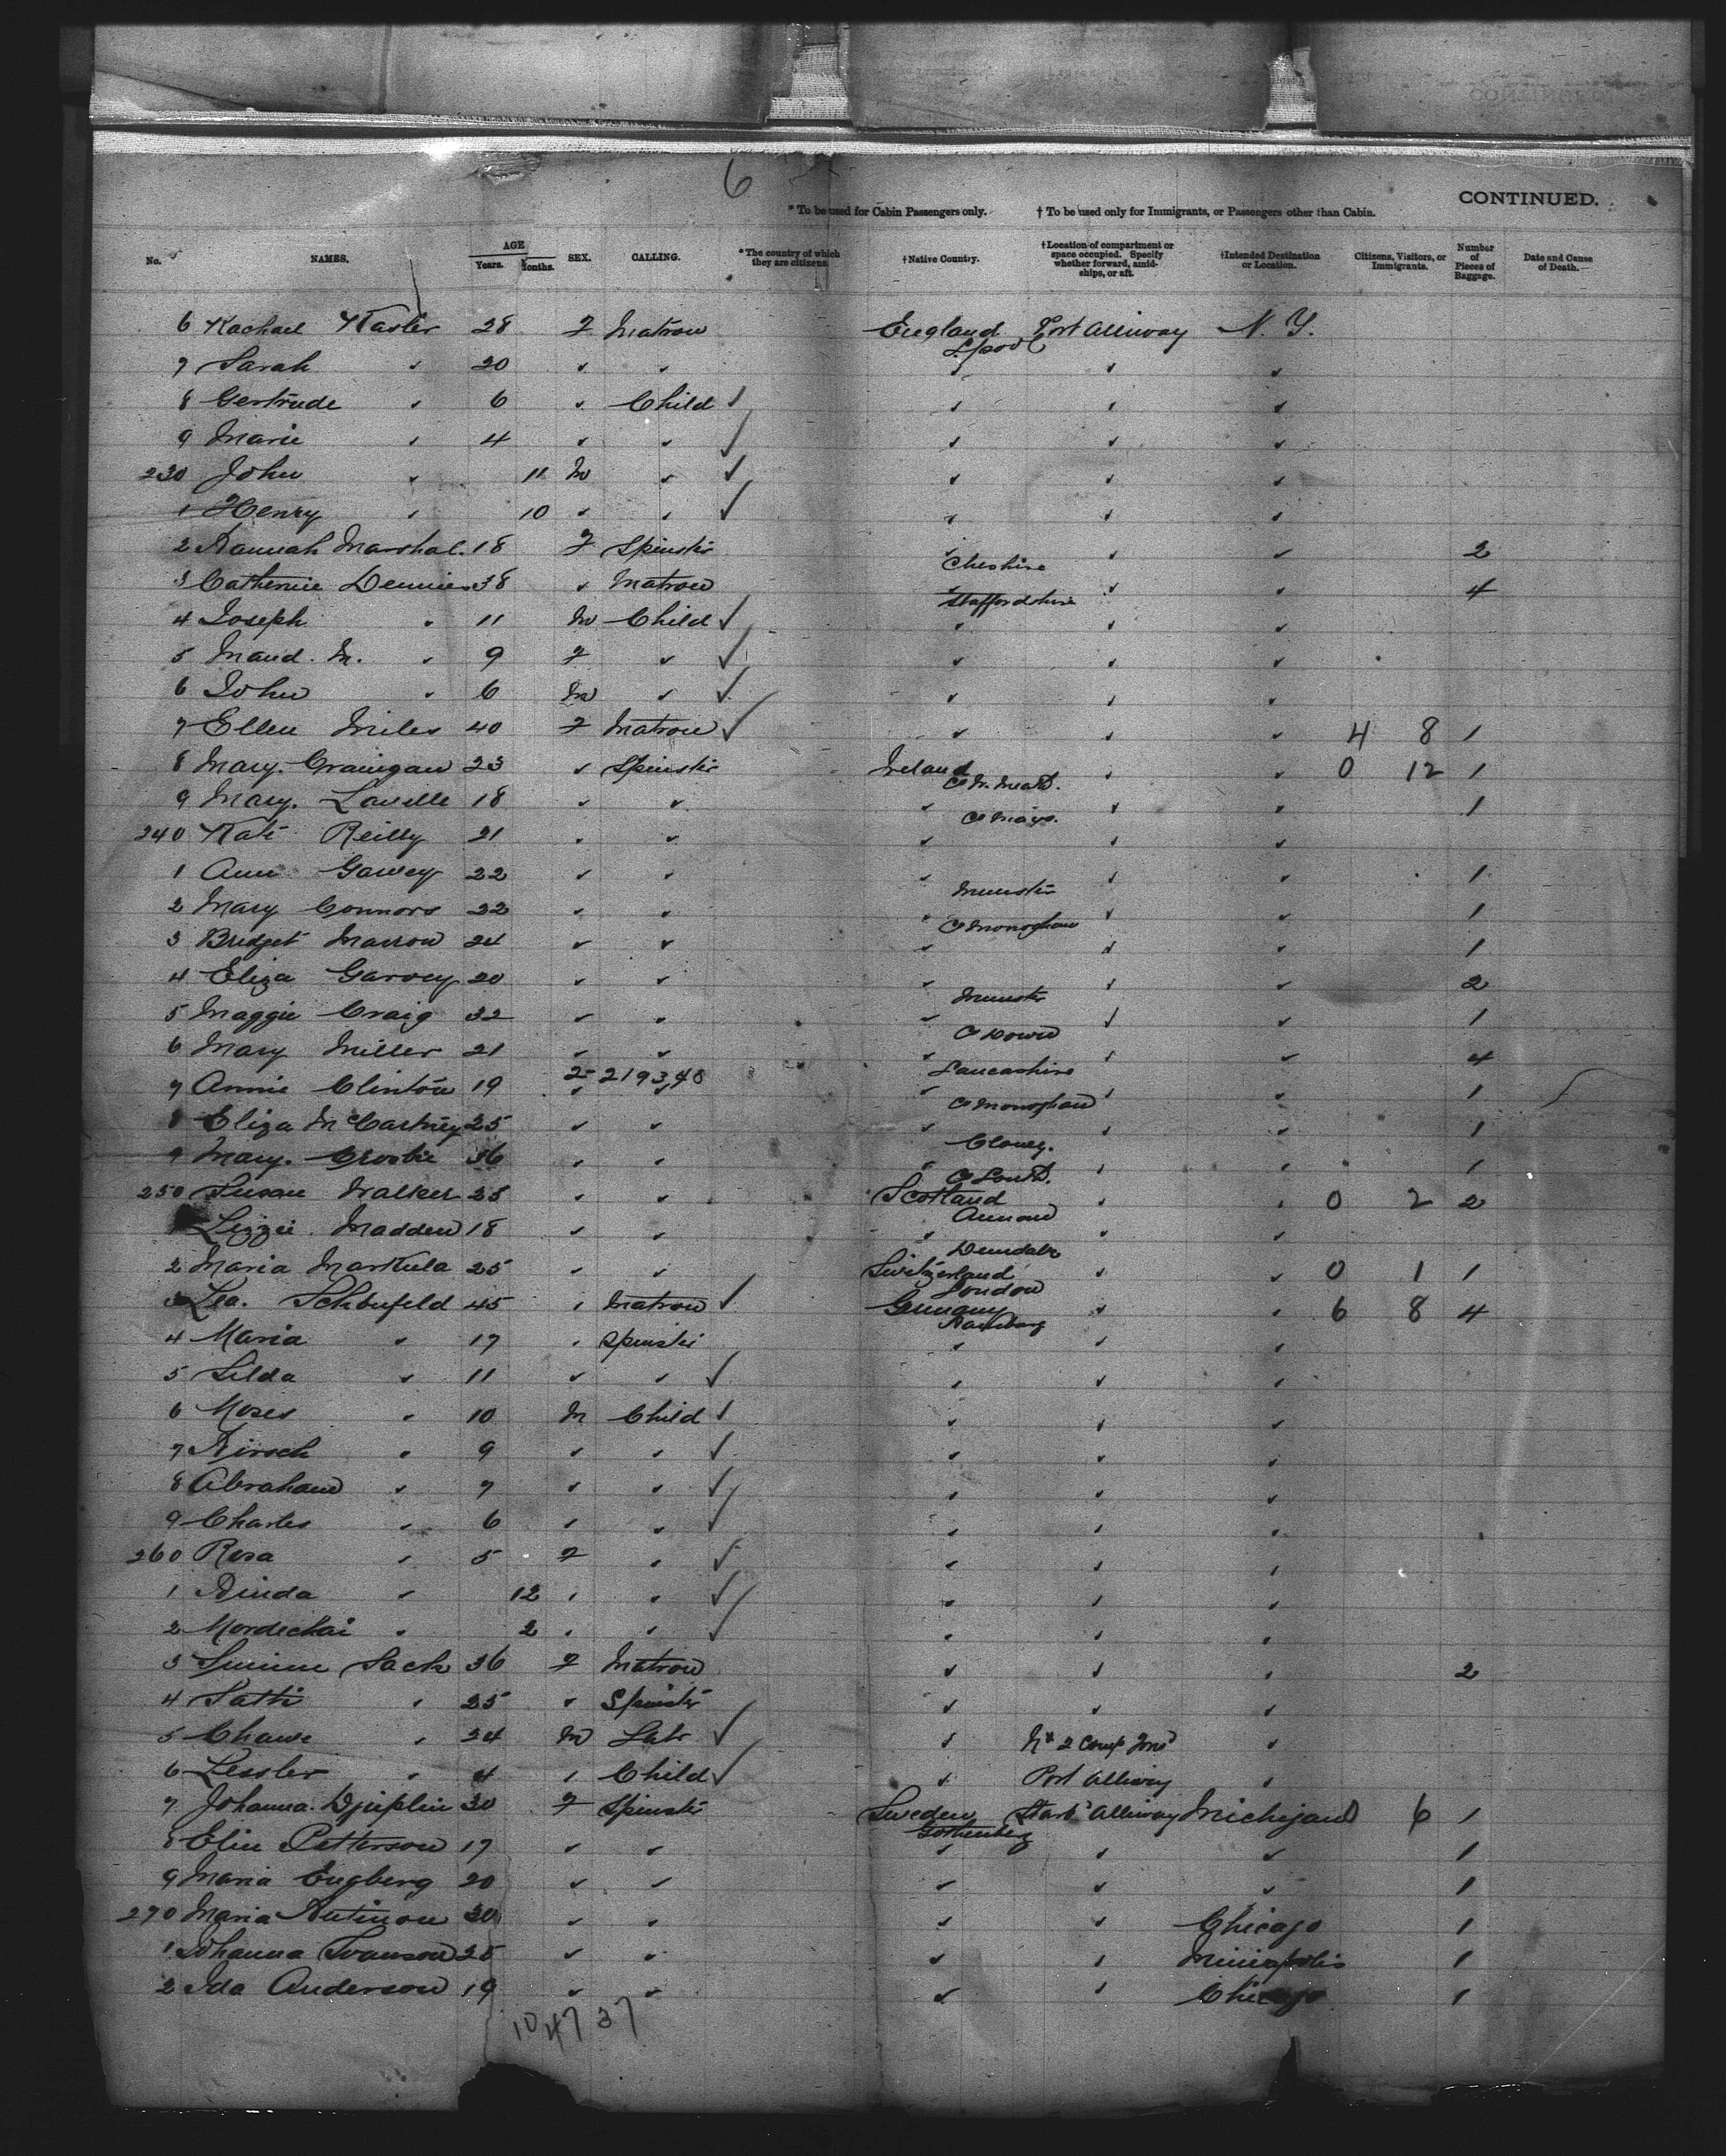 6
CONTINUED.
* To be used for Cabin Passengers only. † To be used only for Immigrants, or Passengers other than Cabin.
No. NAMES. AGE Years. Months. SEX. CALLING. *The country of which they are citizens. †Native Country. †Location of compartment or space occupied. Specify whether forward, amidships, or aft. †Intended Destination or Location. Citizens, Visitors, or Immigrants. Number of Pieces of Baggage. Date and Cause of Death.
6 Rachael Kasler 28 F Matron England L'pool Port Alliway N. Y.
7 Sarah " 20 " " " " "
8 Gertrude " 6 " Child ✓ " " "
9 Marie " 4 " " ✓ " " "
230 John " 11 M " ✓ " " "
1 Henry " 10 " " ✓ " " "
2 Hannah Marshal. 18 F Spinster " Cheshire " " 2
3 Catherine Dennies 38 " Matron " Staffordshire " " 4
4 Joseph " 11 M Child ✓ " " "
5 Maud. M. " 9 F " ✓ " " "
6 John " 6 M " ✓ " " "
7 Ellen Miles 40 F Matron ✓ " " " 4 8 1
8 Mary. 23 " Spinster Ireland " " 0 12 1
9 Mary. Lavelle 18 " " " Co Mayo. " " 1
240 Kate Reilly 21 " " " " "
1 Ann Garvey 22 " " " Munster " " 1
2 Mary Connors 22 " " " Co Monoghan " " 1
3 Bridget Marron 24 " " " " " 1
4 Eliza Garvey 20 " " " Munster " " 2
5 Maggie Craig 32 " " " Co Down " " 1
6 Mary Miller 21 " " " Lancashire " " 4
2-219348
7 Annie Clinton 19 " " " Co Monoghan " " 1
8 Eliza McCartney 25 " " " " " 1
9 Mary. Crosbie 36 " " " Co Louth. " " 1
250 Susan Walker 25 " " Scotland " " 0 2 2
1 Lizzie Madden 18 " " " Dundalk " "
2 Maria Markula 25 " " Switzerland London " " 0 1 1
3 Lea. Schonfeld 45 " Matron ✓ Germany Hamburg " " 6 8 4
4 Maria " 17 " Spinster " " "
5 Silda " 11 " " ✓ " " "
6 Moses " 10 M Child ✓ " " "
7 Hirsch " 9 " " ✓ " " "
8 Abraham " 7 " " ✓ " " "
9 Charles " 6 " " ✓ " " "
260 Rosa " 5 F " ✓ " " "
1 Hinda " 12 " " ✓ " " "
2 Mordechai " 2 " " ✓ " " "
3 Sack 36 F Matron " " " 2
4 Satti " 25 " Spinster " " "
5 " 24 M Labr ✓ " No 2 Comp "
6 Lessler " 4 " Child ✓ " Port Alliway "
7 Johanna. 30 F Spinster Sweden Gothenberg Starb'd Alliway Michigan 0 6 1
8 Elin Petterson 17 " " " " " 1
9 Maria Engberg 20 " " " " " 1
270 Maria 20 " " " " Chicago 1
1 Johanna Svanson 25 " " " " Minapolis 1
2 Ida Anderson 19 " " " " Chicago 1
104737